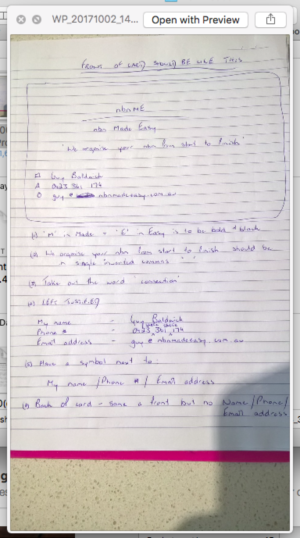 WP_20171002_14...
Open with Preview
FRONT OF CARD SHOULD BE LIKE THIS
nbnME
nbn Made Easy
'We organise your nbn from start to finish'
Guy Baldwick
0423 341 174
guy @ nbnmadeeasy.com.au
(1) 'M' in Made + 'E' in Easy is to be bold + black
(2) We organise your nbn from start to finish - should be
in single inverted commas ' '
(3) Take out the word 'connection'
(4) LEFT JUSTIFIED
My name - Guy Baldwick
Phone # - 0423 341 174
Email address - guy @ nbnmadeeasy.com.au
(5) Have a symbol next to:
My name / Phone # / Email address
(6) Back of card - same as front but no Name / Phone /
Email address